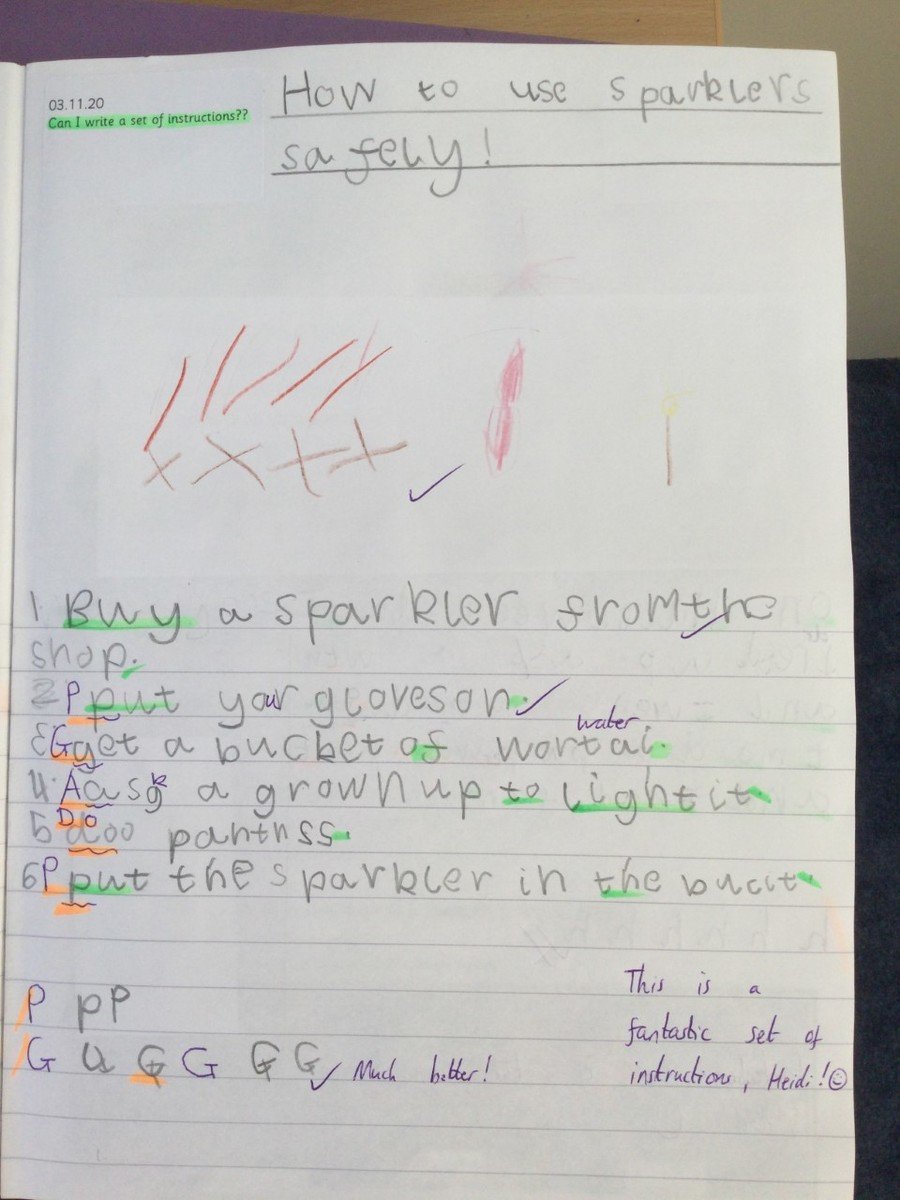 03.11.20
Can I write a set of instructions??
How to use sparklers
safely!
1 Buy a sparkler from the
shop.
2 P put your gloves on.
3 G get a bucket of wortai.
water
4. A ask a grown up to light it.
5 Do doo pantnss.
6 P put the sparkler in the bucit.
P pP
G G G G G G
Much better!
This is a
fantastic set of
instructions, Heidi!☺